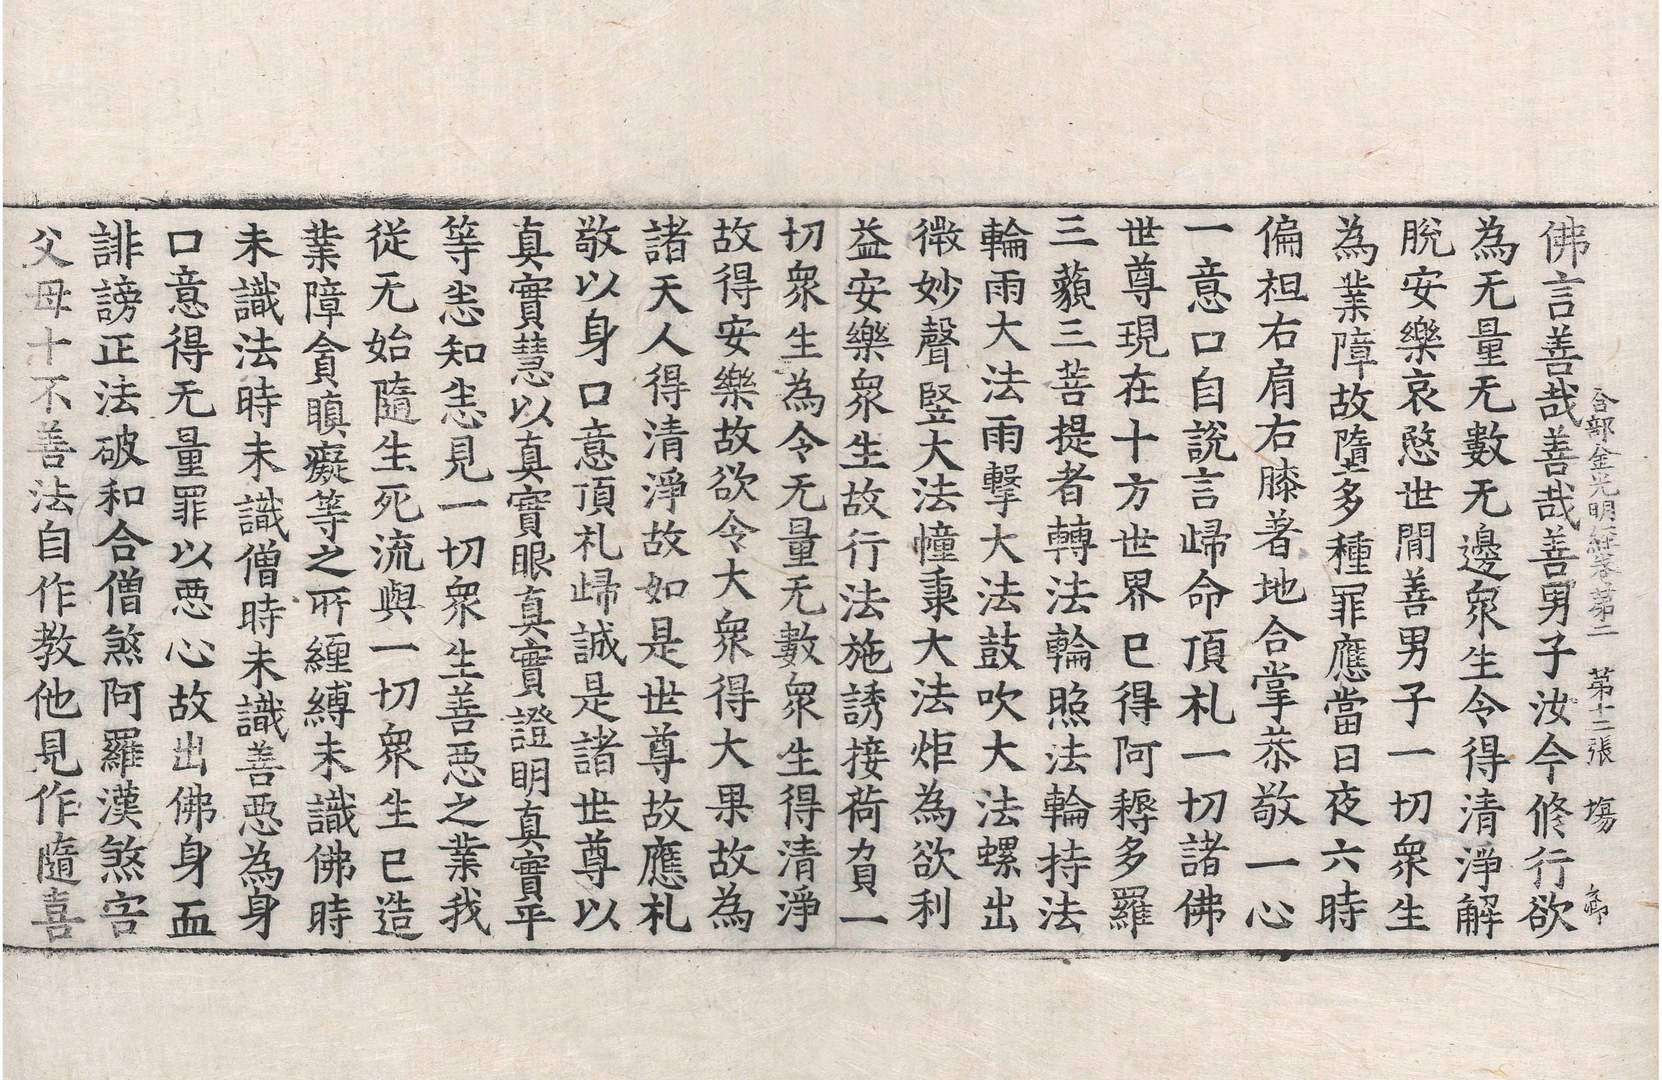 合部金光明經卷第二 第十二張 場 卿
佛言善哉善哉善男子汝今修行欲
為无量无數无邊衆生令得清淨解
脫安樂哀愍世閒善男子一切衆生
為業障故墮多種罪應當日夜六時
偏袒右肩右膝著地合掌恭敬一心
一意口自說言歸命頂礼一切諸佛
世尊現在十方世界已得阿耨多羅
三藐三菩提者轉法輪照法輪持法
輪雨大法雨擊大法鼓吹大法螺出
微妙聲竪大法幢秉大法炬為欲利
益安樂衆生故行法施誘接荷負一
切衆生為令无量无數衆生得清淨
故得安樂故欲令大衆得大果故為
諸天人得清淨故如是世尊故應礼
敬以身口意頂礼歸誠是諸世尊以
真實慧以真實眼真實證明真實平
等悉知悉見一切衆生善惡之業我
從无始隨生死流與一切衆生已造
業障貪瞋癡等之所纏縛未識佛時
未識法時未識僧時未識善惡為身
口意得无量罪以惡心故出佛身血
誹謗正法破和合僧煞阿羅漢煞害
父母十不善法自作教他見作隨喜